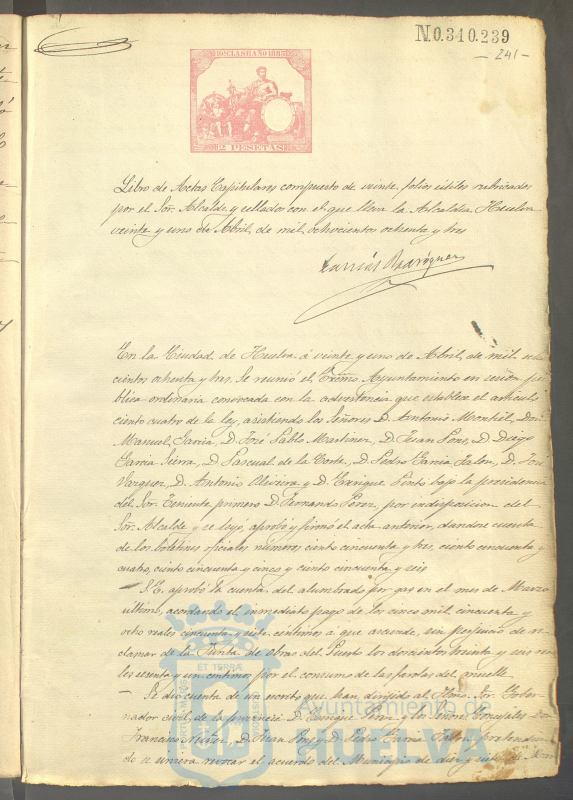 N.0.310.239
- 241 -
10ª CLASE AÑO 1883
2 PESETAS
Libro de Actas Capitulares compuesto de veinte folios útiles rubricados
por el Sor. Alcalde y sellados con el que lleva la Alcaldia. Huelva
veinte y uno de Abril de mil ochocientos ochenta y tres
García Rodríguez
En la Ciudad de Huelva á veinte y uno de Abril de mil ocho-
cientos ochenta y tres. Se reunió el Excmo Ayuntamiento en sesión pú-
blica ordinaria convocada con la advertencia que establece el artículo
ciento cuatro de la ley, asistiendo los Señores D. Antonio Montiel, Don
Manuel Garcia, D. José Pablo Martinez, D. Juan Pons, D. Diego
Garcia Sierra, D. Pascual de la Corte, D. Pedro Garcia Jalon, D. José
Vazquez, D. Antonio Oliveira y D. Enrique Pinto bajo la presidencia
del Sor. Teniente primero D. Fernando Perez, por indisposicion del
Sor. Alcalde y se leyó, aprobó y firmó el acta anterior, dandose cuenta
de los boletines oficiales números ciento cincuenta y tres, ciento cincuenta y
cuatro, ciento cincuenta y cinco y ciento cincuenta y seis
S. E. aprobó la cuenta del alumbrado por gas en el mes de Marzo
último, acordando el inmediato pago de los cinco mil cincuenta y
ocho reales cincuenta y siete centimos á que asciende, sin perjuicio de re-
clamar de la Junta de obras del Puerto los doscientos treinta y seis rea-
les sesenta y un centimos por el consumo de las farolas del muelle
Se dio cuenta de un escrito que han dirigido al Iltmo. Sor. Gober-
nador civil de la provincia D. Enrique Perez y los Señores Concejales Don
Francisco Nuñez, D. Juan Pons y D. Pedro Garcia Jalon pretendien-
do se sirviera revocar el acuerdo del Municipio de diez y siete de
ET TERRÆ
Ayuntamiento de
HUELVA